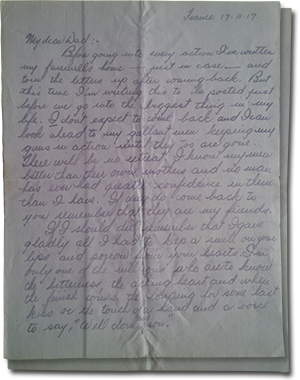 France 19.11.17.
My dear Dad:-
Before going into every action I've written
my farewells home — just in case — and
torn the letters up after coming back. But
this time I'm writing this to be posted just
before we go into the biggest thing in my
life. I don't expect to come back and I can
look ahead to my gallant men keeping my
guns in action until they too are gone.
There will be no retreat. I know my men
better than their own mothers and no man
has ever had greater confidence in them
than I have. If any do come back to
you remember that they are my friends.
If I should die remember that I gave
gladly all I had to keep a smile on your
lips and sorrow from your hearts. I'm
only one of the millions who are to know
the bitterness, the aching heart and when
the finish comes, the longing for some last
kiss or the touch of a hand and a voice
to say, "Well done, son."